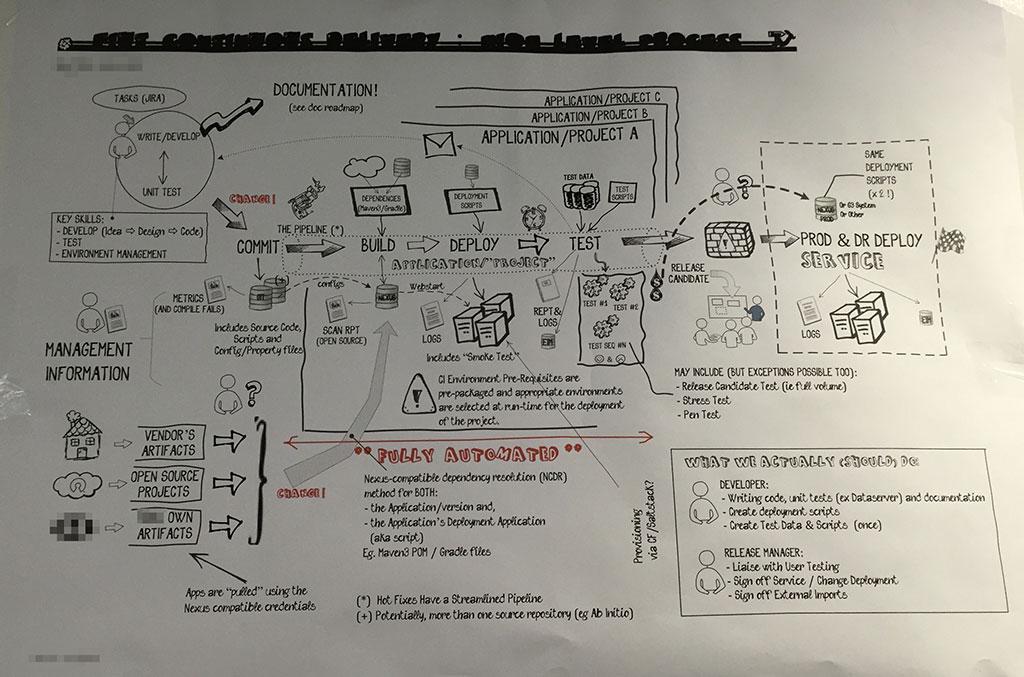 CONTINUOUS DELIVERY : HIGH LEVEL PROCESS
TASKS (JIRA)
WRITE/DEVELOP
UNIT TEST
DOCUMENTATION!
(see doc roadmap)
KEY SKILLS: *
- DEVELOP (Idea ⇨ Design ⇨ Code)
- TEST
- ENVIRONMENT MANAGEMENT
APPLICATION/PROJECT C
APPLICATION/PROJECT B
APPLICATION/PROJECT A
CHANGE!
COMMIT
THE PIPELINE (*)
DEPENDENCIES
(Maven3/Gradle)
BUILD
DEPLOYMENT
SCRIPTS
DEPLOY
TEST DATA
TEST
SCRIPTS
TEST
APPLICATION/"PROJECT"
RELEASE
CANDIDATE
SAME
DEPLOYMENT
SCRIPTS
(x 2 !)
NEXUS
PROD
Or G3 System
Or Other
PROD & DR DEPLOY
SERVICE
LOGS
EIM
METRICS
(AND COMPILE FAILS)
GIT
Includes Source Code,
Scripts and
Config/Property files
MANAGEMENT
INFORMATION
configs
SCAN RPT
(OPEN SOURCE)
NEXUS
Webstart
LOGS
Includes "Smoke Test"
REPT&
LOGS
EIM
TEST #1
TEST #2
TEST SEQ #N
&
CI Environment Pre-Requisites are
pre-packaged and appropriate environments
are selected at run-time for the deployment
of the project.
MAY INCLUDE (BUT EXCEPTIONS POSSIBLE TOO):
- Release Candidate Test (ie full volume)
- Stress Test
- Pen Test
VENDOR'S
ARTIFACTS
OPEN SOURCE
PROJECTS
OWN
ARTIFACTS
Apps are "pulled" using the
Nexus compatible credentials
CHANGE!
"FULLY AUTOMATED"
Nexus-compatible dependency resolution (NCDR)
method for BOTH:
- the Application/version and,
- the Application's Deployment Application
(aka script)
Eg. Maven3 POM / Gradle files
(*) Hot Fixes Have a Streamlined Pipeline
(+) Potentially, more than one source repository (eg Ab Initio)
Provisioning
via CF/Saltstack?
WHAT WE ACTUALLY (SHOULD) DO:
DEVELOPER:
- Writing code, unit tests (ex Dataserver) and documentation
- Create deployment scripts
- Create Test Data & Scripts (once)
RELEASE MANAGER:
- Liaise with User Testing
- Sign off Service / Change Deployment
- Sign off External Imports